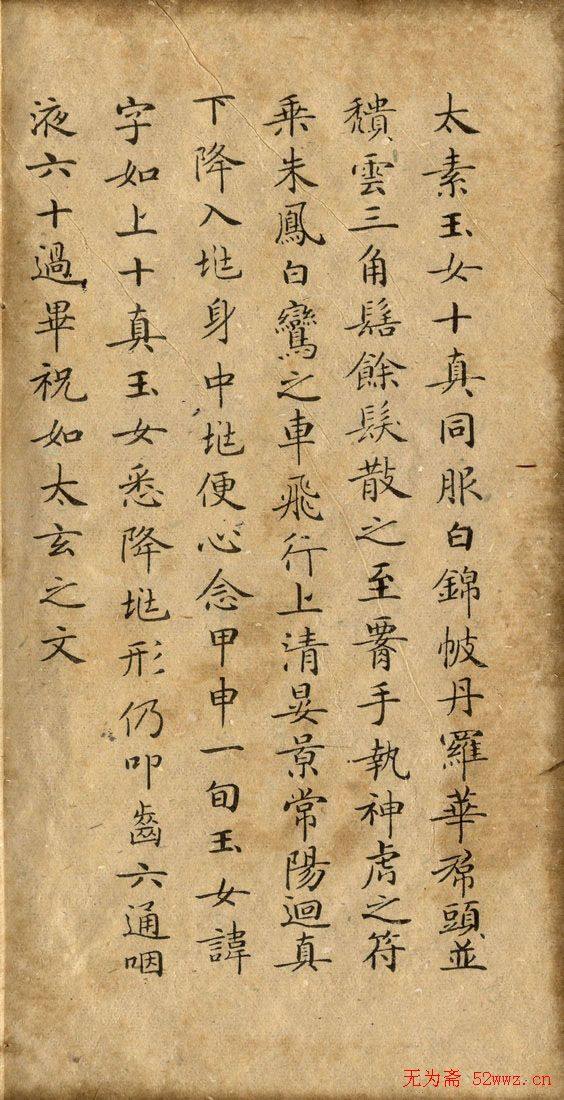 太素玉女十真同服白錦帔丹羅華帬頭並
頽雲三角髻餘髮散之至腰手執神虎之符
乗朱鳳白鸞之車飛行上清晏景常陽迴真
下降入兆身中兆便心念甲申一旬玉女諱
字如上十真玉女悉降兆形仍叩齒六通咽
液六十過畢祝如太玄之文
无为斋 52wwz.cn